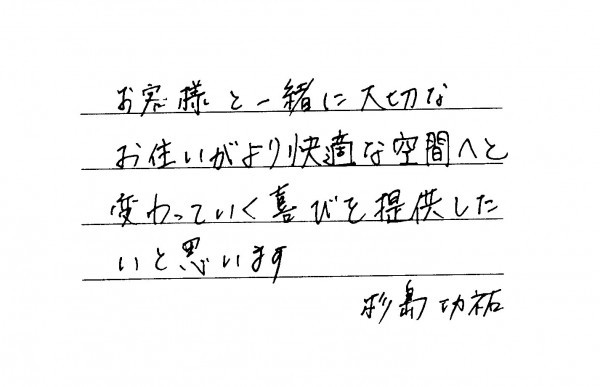 お客様と一緒に大切な
お住いがより快適な空間へと
変わっていく喜びを提供した
いと思います
杉島功祐